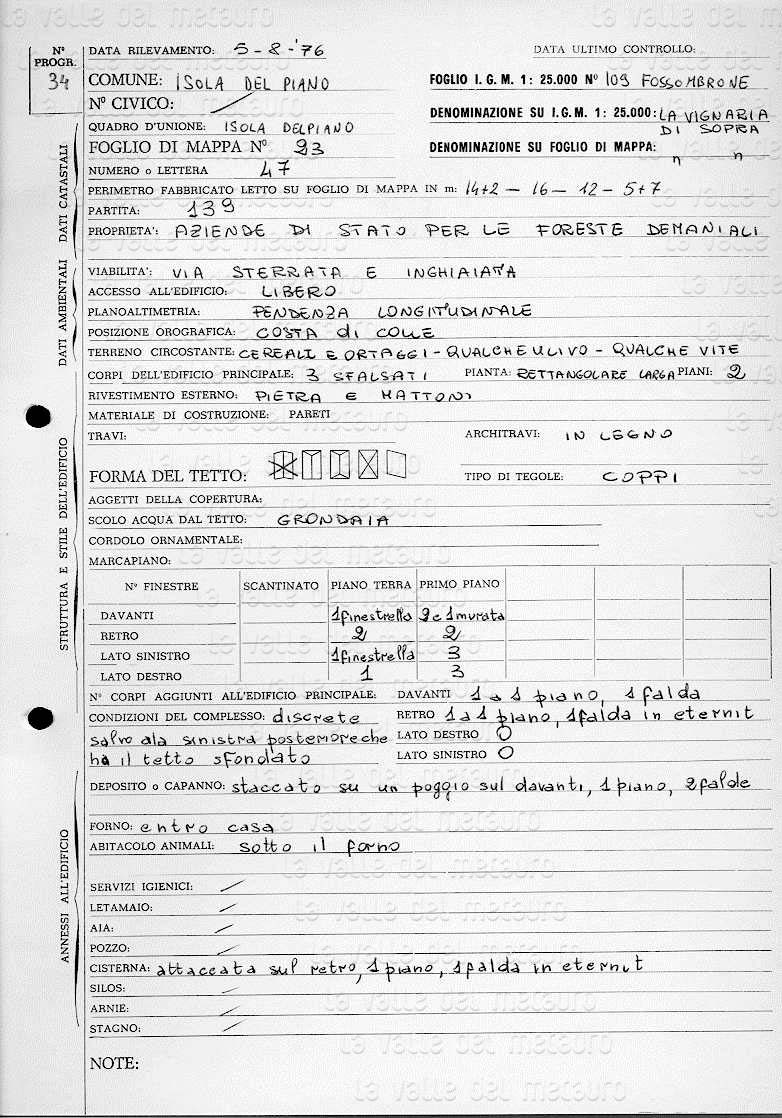 Nº PROGR.
34
DATA RILEVAMENTO: 5-8-'76
DATA ULTIMO CONTROLLO:
COMUNE: ISOLA DEL PIANO
FOGLIO I. G. M. 1: 25.000 Nº 109 FOSSOMBRONE
Nº CIVICO:
DENOMINAZIONE SU I.G.M. 1: 25.000: LA VIGNARIA DI SOPRA
QUADRO D'UNIONE: ISOLA DELPIANO
FOGLIO DI MAPPA Nº 23
DENOMINAZIONE SU FOGLIO DI MAPPA: " "
NUMERO o LETTERA 47
PERIMETRO FABBRICATO LETTO SU FOGLIO DI MAPPA IN m: 14+2 - 16 - 12 - 5+7
PARTITA: 139
PROPRIETA': AZIENDE DI STATO PER LE FORESTE DEMANIALI
DATI CATASTALI
VIABILITA': VIA STERRATA E INGHIAIATA
ACCESSO ALL'EDIFICIO: LIBERO
PLANOALTIMETRIA: PENDENZA LONGITUDINALE
POSIZIONE OROGRAFICA: COSTA di COLLE
TERRENO CIRCOSTANTE: CEREALI E ORTAGGI - QUALCHE ULIVO - QUALCHE VITE
DATI AMBIENTALI
CORPI DELL'EDIFICIO PRINCIPALE: 3 SFALSATI PIANTA: RETTANGOLARE LARGA PIANI: 2
RIVESTIMENTO ESTERNO: PIETRA E MATTONI
MATERIALE DI COSTRUZIONE: PARETI
TRAVI:
ARCHITRAVI: IN LEGNO
FORMA DEL TETTO:
TIPO DI TEGOLE: COPPI
AGGETTI DELLA COPERTURA:
SCOLO ACQUA DAL TETTO: GRONDAIA
CORDOLO ORNAMENTALE:
MARCAPIANO:
Nº FINESTRE SCANTINATO PIANO TERRA PRIMO PIANO
DAVANTI 1 finestrella 2 e 1 murata
RETRO 2 2
LATO SINISTRO 1 finestrella 3
LATO DESTRO 1 3
STRUTTURA E STILE DELL'EDIFICIO
Nº CORPI AGGIUNTI ALL'EDIFICIO PRINCIPALE: DAVANTI 1 a 1 piano, 1 falda
CONDIZIONI DEL COMPLESSO: discrete
RETRO 1 a 1 piano, 1 falda in eternit
salvo ala sinistra posteriore che
LATO DESTRO 0
ha il tetto sfondato
LATO SINISTRO 0
DEPOSITO o CAPANNO: staccato su un poggio sul davanti, 1 piano, 2 falde
FORNO: entro casa
ABITACOLO ANIMALI: sotto il forno
SERVIZI IGIENICI:
LETAMAIO:
AIA:
POZZO:
CISTERNA: attaccata sul retro, 1 piano, 1 falda in eternit
SILOS:
ARNIE:
STAGNO:
ANNESSI ALL'EDIFICIO
NOTE:
la valle del metauro